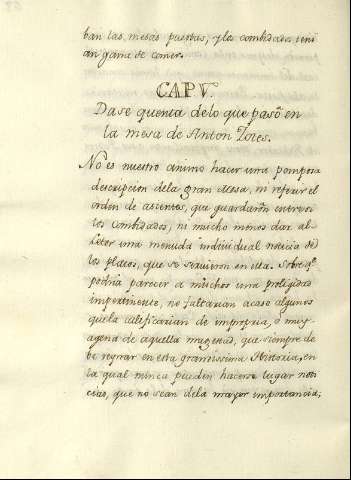 ban las mesas puestas, y la combidada teni
an gana de comer.
CAP V.
Dase quenta delo que pasô en
la mesa de Anton Zotes.
No es nuestro animo hacer una pomposa
descripcion dela gran Mesa, ni referir el
orden de asientos, que guardaron entresi
los Combidados, ni mucho menos dar al
Letor una menuda individual noticia de
los platos, que se sirvieron en ella. Sobre q.e
podria parecer a muchos una proligidad
impertinente, no faltarian acaso algunos
quela calificarian de impropria, ô muy
agena de aquella magestad, que siempre de
be reynar en esta gravissima Historia, en
la qual nunca pueden hacerse lugar noti
cias, que no sean dela mayor importancia;